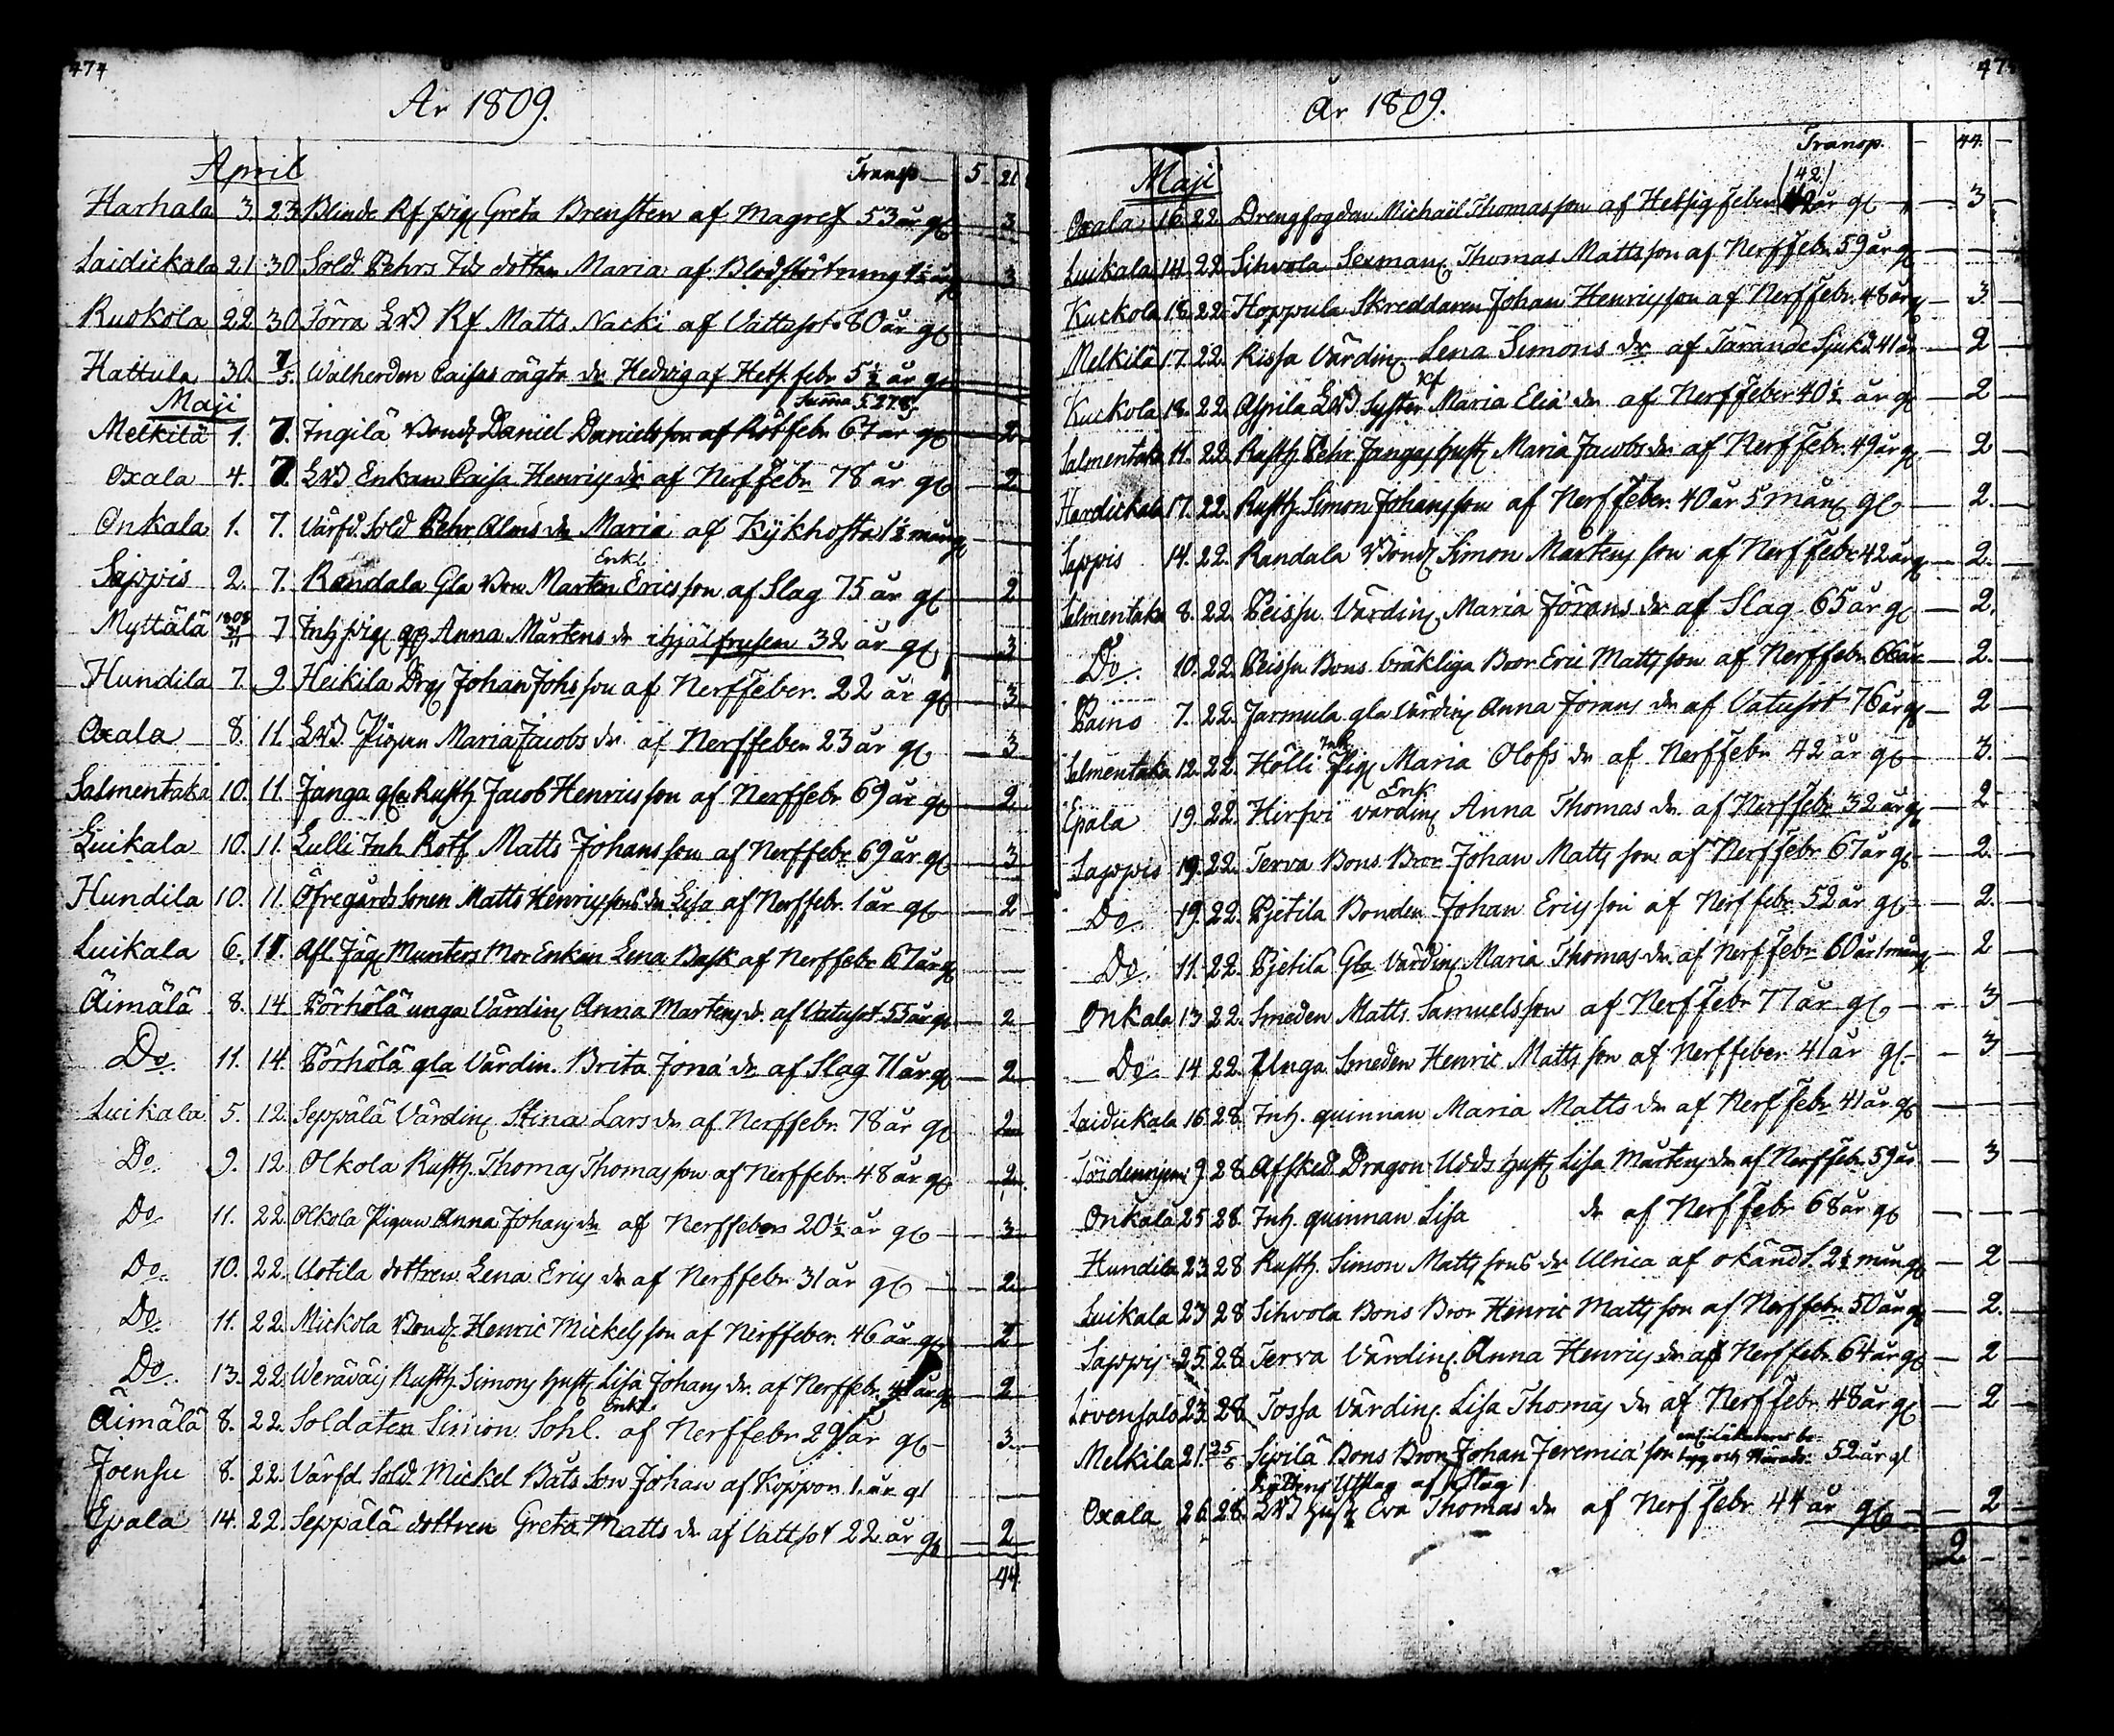 474
År 1809.
April Transp. 5. 21
Harhala 3. 23. Blinde Rf pig Greta Brensten af Magref 53 år gl 3
Laidickala 21 30 Sold Pehrs dottan Maria af Blodstörtning 1½ år gl 3
Ruokola 22 30 Törra LvD Rf Matts Nacki af Vattusot 80 år gl
Hattula 30. 7/5. Walherden Caisas oägta dr Hedvig af Hets. febr 5½ år gl
Maji Summa 5.27.8
Melkilä 1. 7. Ingilä Bond Daniel Danielsson af Rötfebr 67 år gl 2
Oxala 4. 7. LvD Enkan Caisa Henrics dr af Nerffebr 78 år gl 2
Onkala 1. 7. Värfd. Sold Pehr Alms dr Maria af Kykhosta 1½ mång
Enkl
Sappis 2. 7. Randala Gla Bon Mårten Ericsson af Slag 75 år gl 2
Myttälä 1808 7 Inh pig Anna Mårtens dr ihjälfrusen 32 år gl 3
Hundila 7. 9. Heikila Drg Johan Johsson af Nerffeber. 22 år gl 3
Oxala 8. 11. LvD Pigan Maria Jacobs dr af Nerffeber 23 år gl 3
Salmentaka 10. 11. Janga gle Rusth Jacob Henricsson af Nerffebr 69 år gl 2
Luikala 10. 11. Lulli Inh Rotf Matts Johansson af Nerffebr 69 år gl 3
Hundila 10. 11. Öfregårds sonen Matts Henricssons dr Lisa af Nerffebr. 1 år gl 2
Luikala 6. 11. Afl. Jäg Munsters Mor Enkan Lena Bask af Nerffebr 67 år gl
Äimälä 8. 14 Pörhölä unga Värdin Anna Mårtens dr. af Vatusot 55 år gl 2
Do. 11. 14. Pörhölä gla Värdin. Brita Jona dr af Slag 71 år gl 2
Luikala 5. 12. Seppälä Värdin Stina Lars dr af Nerffebr 78 år gl 2
Do. 9. 12 Olkola Rusth. Thomas Thomasson af Nerffebr 48 år gl 2
Do 11. 22. Olkola Pigan Anna Johans dr af Nerffebers 20½ år gl 3
Do. 10. 22. Uotila dottren Lena Erics dr af Nerffebr 31 år gl 2
Do. 11. 22. Mickola Bond Henric Mickelsson af Nerffeber. 46 år gl 2
Do. 13. 22. Weräväis Rusth Simons hust Lisa Johans dr. af Nerffebr. år gl 2
Enkl
Äimälä 8. 22. Soldaten Simon Sohl. af Nerffebr 29 år gl 3.
Joensu 8. 22. Värfd Sold. Mickel Båts Son Johan af Koppor 1. år gl
Epala 14. 22. Seppälä dottren Greta Matts dr af Vattsot 22 år gl 2
44
47
År 1809.
Transp. 44.
Maji (42)
Oxala 16. 22. Drengfogden Michaël Thomasson af Hetsig feber 42 år gl 3
Luikala 14. 22 Sihvola Sexman Thomas Mattsson af Nerffebr 59 år gl
Kuckola 18. 22. Hoppula Skreddaren Johan Henricsson af Nerffebr. 48 år gl 3.
Melkilä 17. 22. Rissa Värdin Lena Simons dr af Tärande Sjukd. 41 år 2
Rf
Kuckola 18. 22. Asprila LvD Syster Maria Elia dr af Nerffeber 40½ år gl 2
Salmentaka 11. 22. Rusth Pehr Jangas hust Maria Jacobs dr af Nerffebr. 49 år gl 2
Hardickala 17. 22. Rusth. Simon Johansson af Nerffeber. 40 år 5 mån gl 2.
Sappis 14. 22. Randala Bond Simon Mårtensson af Nerffebr 42 år gl 2.
Salmentaka 8. 22. Peissu Värdin Maria Jörans dr af Slag 65 år gl 2.
Do. 10. 22. Peissu Bons bräkliga Bror Eric Mattsson af Nerffebr. 66 år 2.
Päino 7. 22. Jarmula gla Värdin Anna Jörans dr af Vatusot 76 år gl 2
Inh
Salmentaka 12. 22. Hölli Pig Maria Olofs dr af Nerffebr 42 år gl 3.
Enk
Epala 19. 22. Hirfvi värdin Anna Thomas dr af Nerffebr 32 år gl 2
Sappis 19. 22. Terva Bons Bror Johan Mattsson af Nerffebr 67 år gl 2.
Do 19. 22. Pjetila Bonden Johan Ericsson af Nerffebr 52 år gl 2.
Do. 11. 22. Pjetila Gla Värdin Maria Thomas dr. af Nerffebr 60 år 1 mån 2
Onkala 13 22. Smeden Matts Samuelsson af Nerffebr 77 år gl 3
Do. 14 22. Unga Smeden Henric Mattsson af Nerffeber 41 år gl 3
Laidickala 16. 28. Inh. quinnan Maria Matts dr af Nerffebr 41 år gl
9. 28. Afsked Dragon Udds hust Lisa Mårtens dr af Nerffebr. 59 år 3
Onkala 25 28. Inh. quinnan Lisa dr af Nerffebr 68 år gl
Hundila 23 28 Rusth. Simon Mattssons dr Ulrica af okänd S. 2½ mån gl 2
Luikala 23 28 Sihvola Bons Bror Henric Mattsson af Nerffebr 50 år gl 2.
Sappis 25. 28. Terva Värdin Anna Henrics dr af Nerffebr. 64 år gl 2
Lovensalo 23. 28. Tossa Värdin Lisa Thomas dr af Nerffebr. 48 år gl 2
Melkila 21. 25/6 Sipilä Bons Bron Johan Jeremiason 52 år gl
af Slag
Oxala 26. 28. LvD hust Eva Thomas dr af Nerffebr 44 år gl 2
2